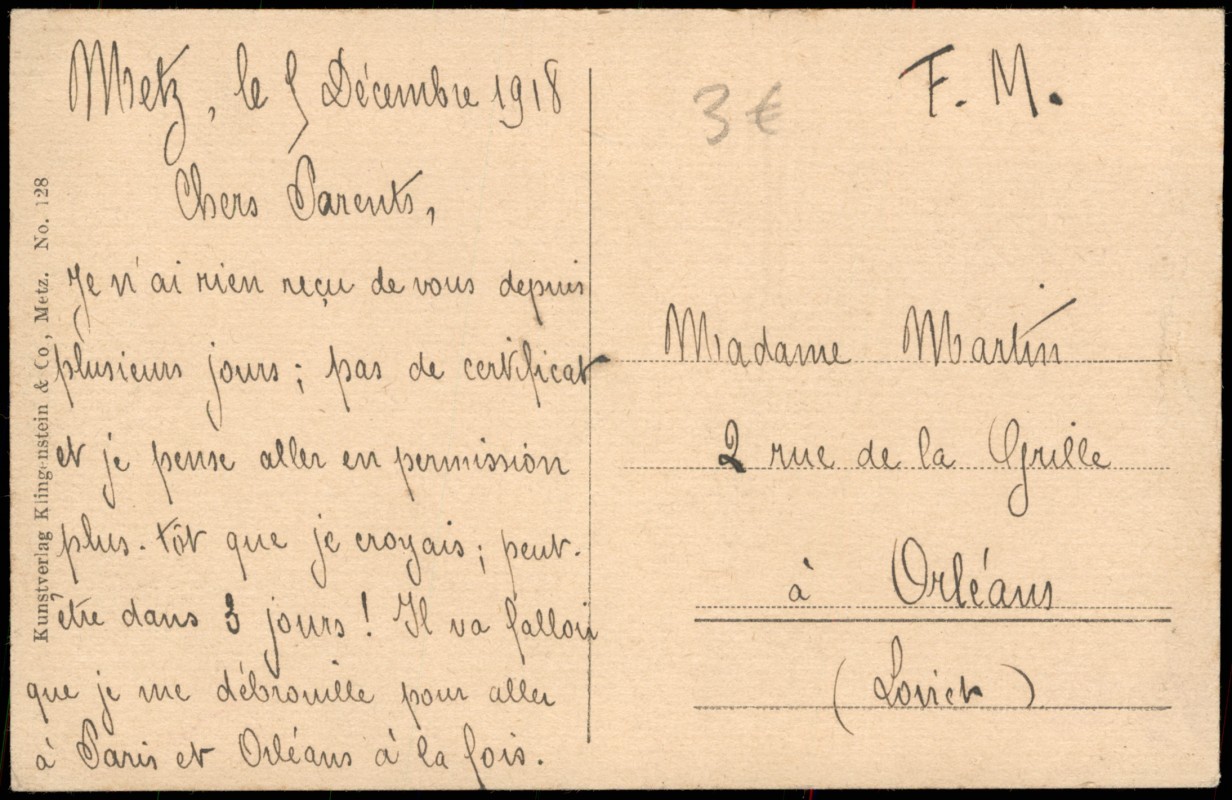 Metz, le 5 Décembre 1918
Chers Parents,
Je n'ai rien reçu de vous depuis
plusieurs jours ; pas de certificat
et je pense aller en permission
plus-tôt que je croyais ; peut-
être dans 3 jours ! Il va falloir
que je me débrouille pour aller
à Paris et Orléans à la fois.
Kunstverlag Klingenstein & Co, Metz. No. 128
3 €
F. M.
Madame Martin
2 rue de la Grille
à Orléans
(Loiret)